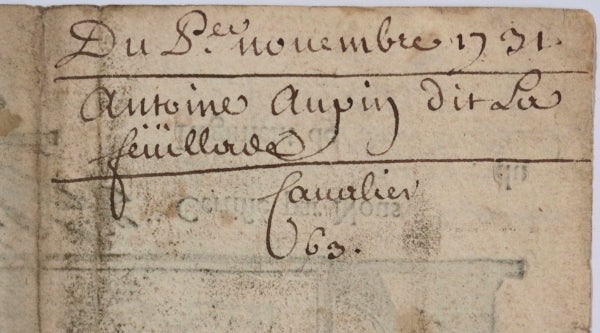 Du P.er novembre 1731.
Antoine Aupin dit La
feüillade
Cavalier
63.